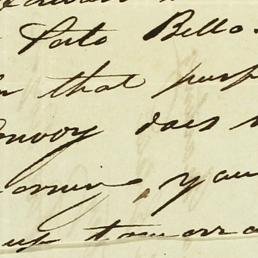 Porto Bello.
that purp
Convoy does n
morning you
up tomorro